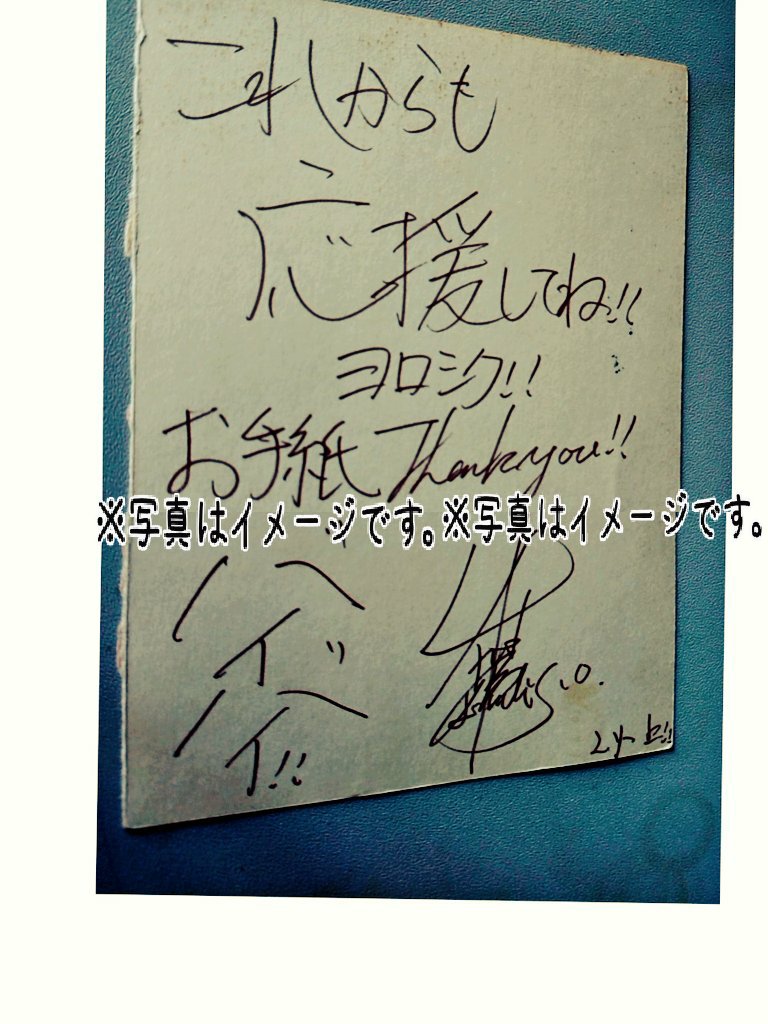 これからも
応援してね!!
ヨロシク!!
お手紙Thank you!!
※写真はイメージです。※写真はイメージです。
ハイッ
ハイ!!